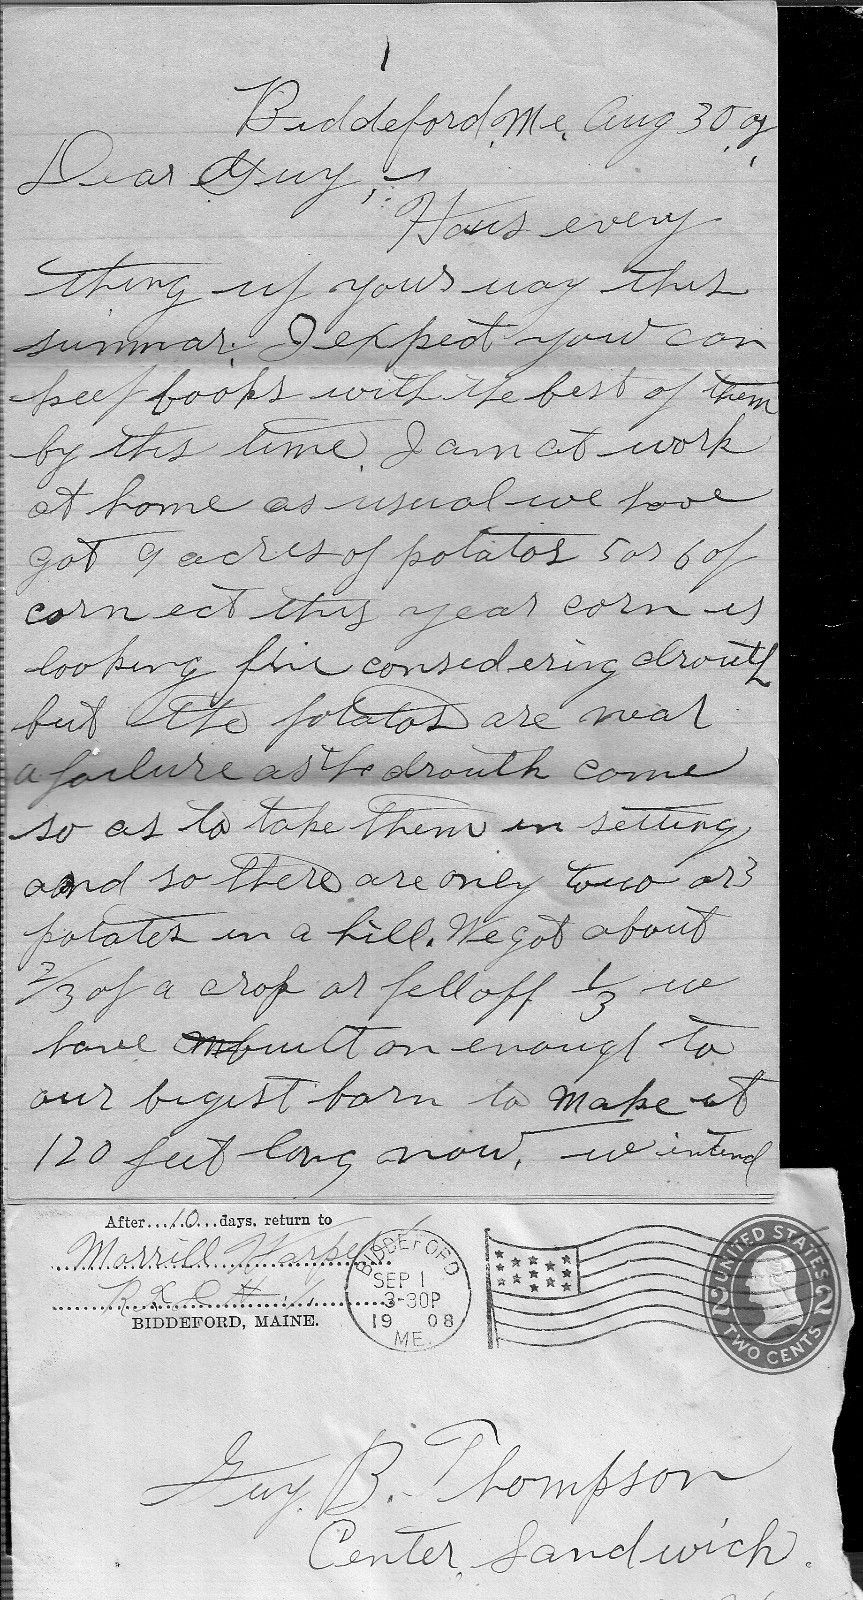 1
Biddeford, Me, Aug 30
Dear Guy,
Haus every
thing up your way this
summar. I expect you can
keep books with the best of them
by this time. I am at work
at home as usual we have
got 9 acres of potatos 5 or 6 of
corn ect this year corn is
looking fine considering drouth
but the potatos are near
a failure as the drouth come
so as to take them in setting
and so there are only two or 3
potates in a hill. We got about
2/3 of a crop or fell off 1/3 we
have built on enough to
our bigest barn to make it
120 feet long now. we intend
After....10...days, return to
Morrill
BIDDEFORD, MAINE.
BIDDEFORD
SEP 1
3-30P
1908
ME.
UNITED STATES
2 2
TWO CENTS
Guy. B. Thompson
Center, Sandwich.